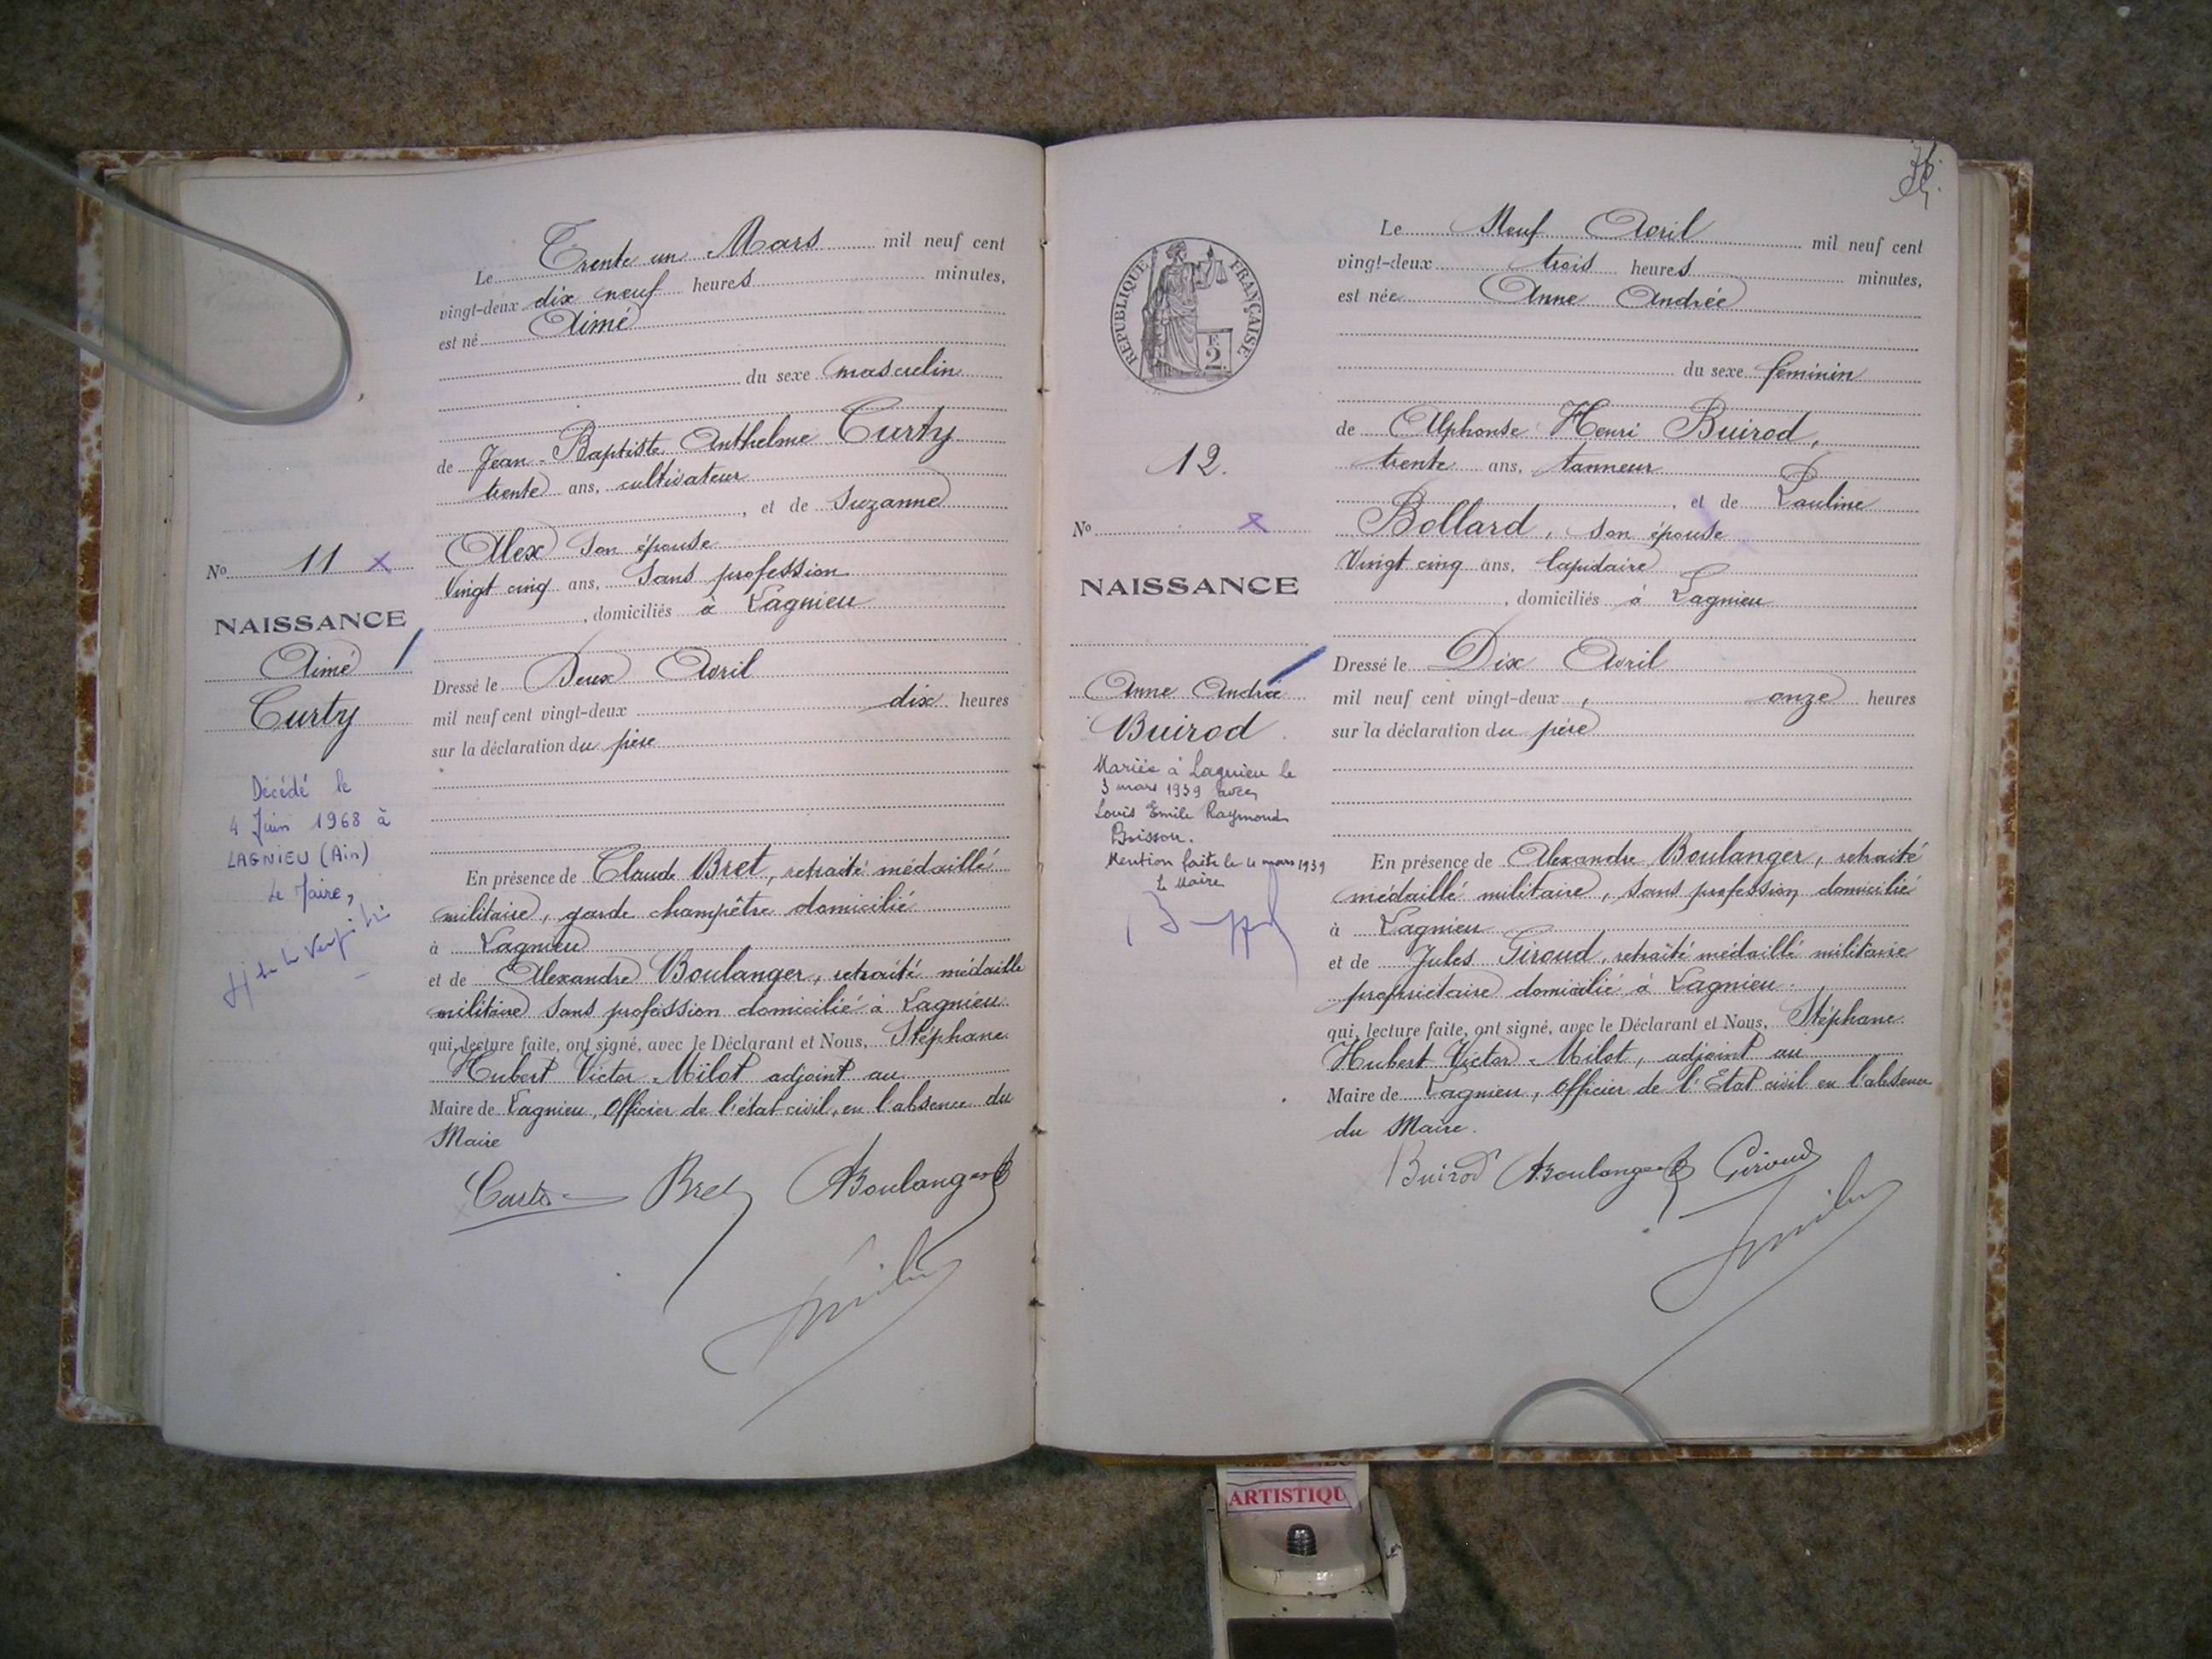 Le Trente un Mars mil neuf cent
vingt-deux dix neuf heures minutes,
est né Aimé
du sexe masculin
de Jean-Baptiste Anthelme Curty
trente ans, cultivateur
, et de Suzanne
Alex son épouse
Vingt cinq ans, sans profession
, domiciliés à Lagnieu
Dressé le Deux Avril
mil neuf cent vingt-deux dix heures
sur la déclaration du père
En présence de Claude Bret, retraité médaillé
militaire, garde champêtre domicilié
à Lagnieu
et de Alexandre Boulanger, retraité médaille
militaire sans profession domicilié à Lagnieu
qui, lecture faite, ont signé, avec le Déclarant et Nous, Stéphane
Hubert Victor Milot adjoint au
Maire de Lagnieu, Officier de l'état civil, en l'absence du
Maire
Curty Bret ABoulanger
No 11 x
NAISSANCE
Aimé
Curty
Décédé le
4 Juin 1968 à
LAGNIEU (Ain)
Le Maire,
RÉPUBLIQUE FRANÇAISE
E
2
Le Neuf Avril mil neuf cent
vingt-deux trois heures minutes,
est née Anne Andrée
du sexe féminin
de Alphonse Henri Buirod,
trente ans, tanneur
, et de Pauline
Bollard, son épouse
Vingt cinq ans, lapidaire
, domiciliés à Lagnieu
Dressé le Dix Avril
mil neuf cent vingt-deux, onze heures
sur la déclaration du père
En présence de Alexandre Boulanger, retraité
médaillé militaire, sans profession domicilié
à Lagnieu
et de Jules Giroud, retraité médaillé militaire
propriétaire domicilié à Lagnieu.
qui, lecture faite, ont signé, avec le Déclarant et Nous, Stéphane
Hubert Victor Milot, adjoint au
Maire de Lagnieu, Officier de l'Etat civil en l'absence
du Maire.
Buirod ABoulanger Giroud
12.
No x
NAISSANCE
Anne Andrée
Buirod
Mariée à Lagnieu le
3 mars 1939 avec
Louis Emile Raymond
Buisson.
Mention faite le 4 mars 1939
Le Maire
ARTISTIQU